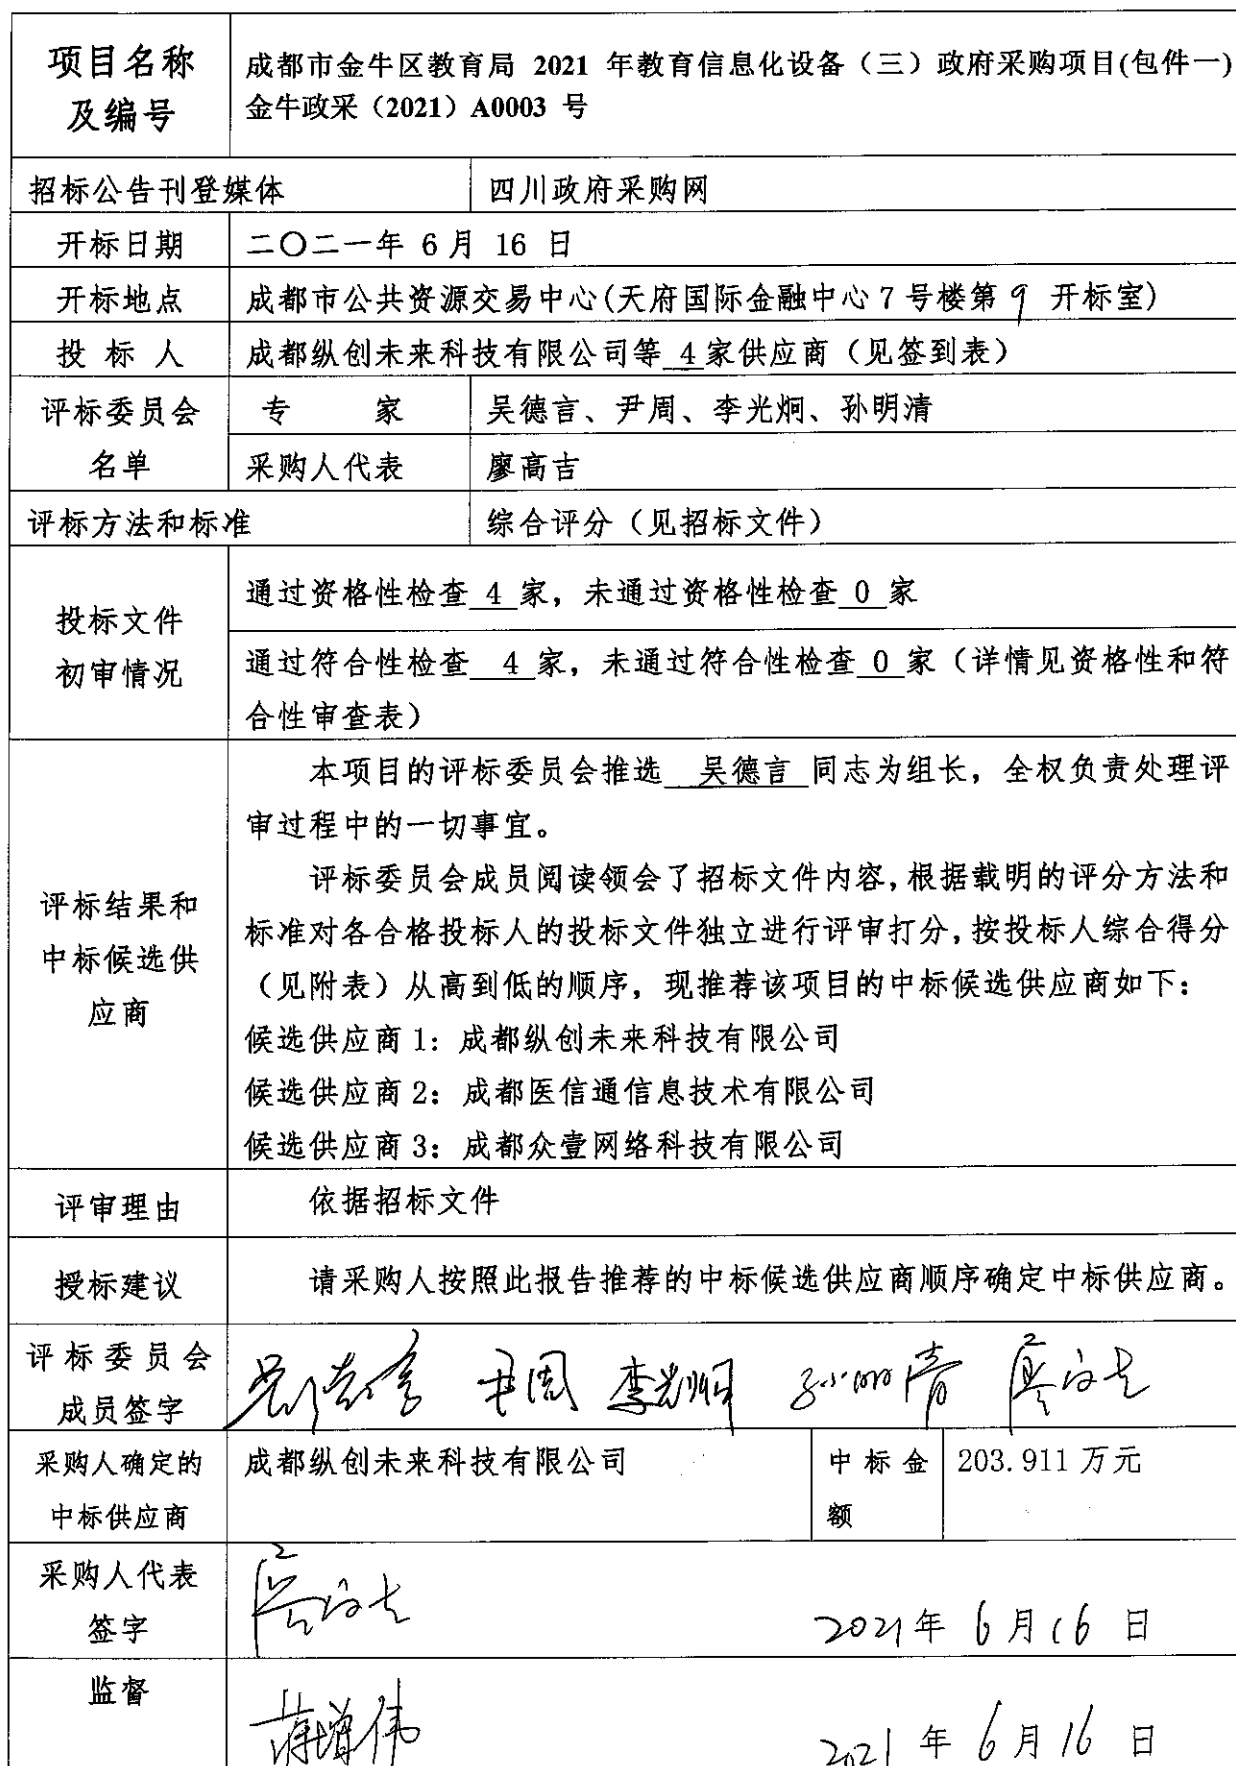 项目名称
及编号
成都市金牛区教育局 2021 年教育信息化设备（三）政府采购项目(包件一)
金牛政采（2021）A0003 号
招标公告刊登媒体
四川政府采购网
开标日期
二〇二一年 6 月 16 日
开标地点
成都市公共资源交易中心(天府国际金融中心 7 号楼第 9 开标室)
投 标 人
成都纵创未来科技有限公司等 4 家供应商（见签到表）
评标委员会
名单
专 家
吴德言、尹周、李光炯、孙明清
采购人代表
廖高吉
评标方法和标准
综合评分（见招标文件）
投标文件
初审情况
通过资格性检查 4 家，未通过资格性检查 0 家
通过符合性检查 4 家，未通过符合性检查 0 家（详情见资格性和符
合性审查表）
评标结果和
中标候选供
应商
本项目的评标委员会推选 吴德言 同志为组长，全权负责处理评
审过程中的一切事宜。
评标委员会成员阅读领会了招标文件内容，根据载明的评分方法和
标准对各合格投标人的投标文件独立进行评审打分，按投标人综合得分
（见附表）从高到低的顺序，现推荐该项目的中标候选供应商如下：
候选供应商 1：成都纵创未来科技有限公司
候选供应商 2：成都医信通信息技术有限公司
候选供应商 3：成都众壹网络科技有限公司
评审理由
依据招标文件
授标建议
请采购人按照此报告推荐的中标候选供应商顺序确定中标供应商。
评标委员会
成员签字
吴德言 尹周 李光炯 孙明清 廖高吉
采购人确定的
中标供应商
成都纵创未来科技有限公司
中标金
额
203.911 万元
采购人代表
签字
廖高吉
2021年 6月16 日
监督
蒋增伟
2021 年 6月16 日